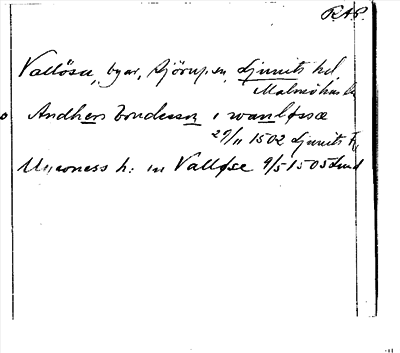 RAP.
Vallösa, byar, Sjörup sn, Ljunits hd,
Malmöhus l.
Andhers bondesson i wanløssæ
29/11 1502 Ljunits h
h: in Valløse 9/5 1505 Lund